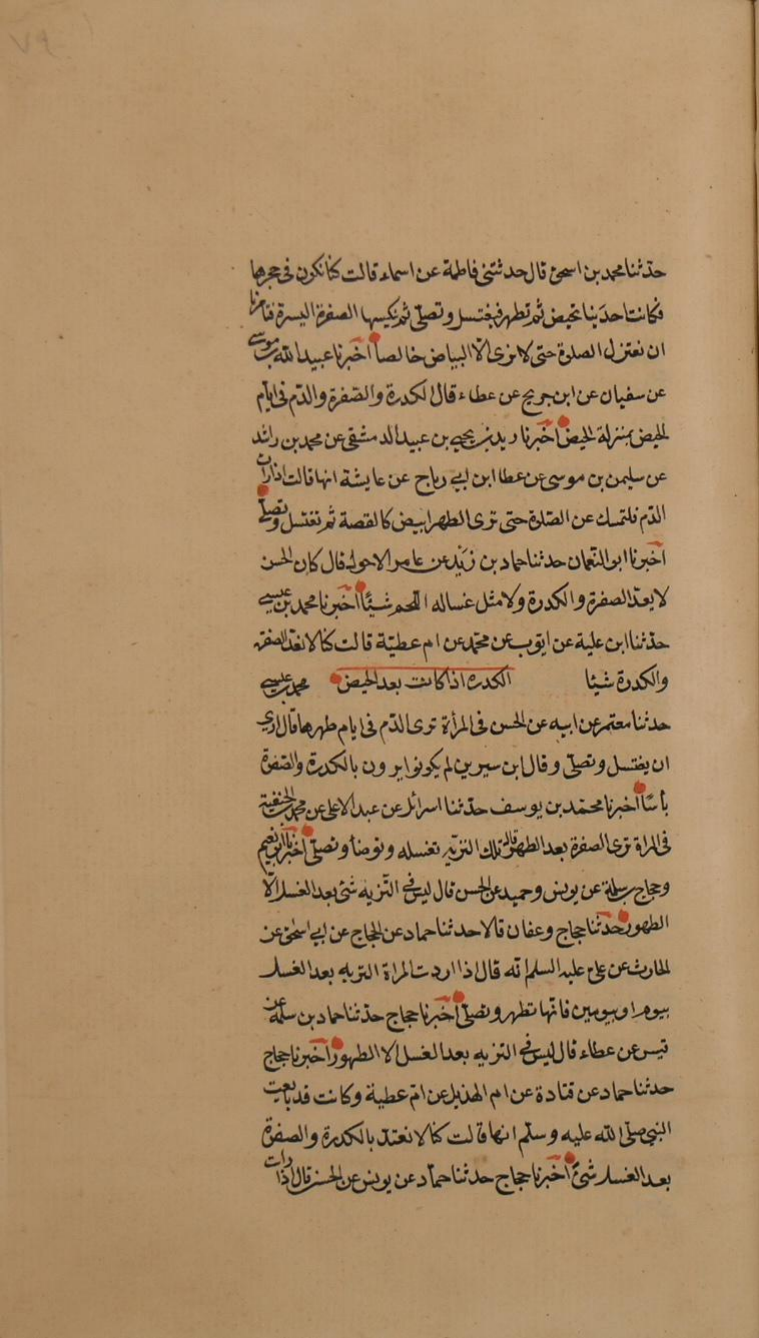 حدثنا محمد بن اسحق قال حدثتنى فاطمة عن اسماء قالت كنا نكون فى حجرها
فكانت احدىنا تحيض ثم تطهر فتغتسل وتصلى ثم تنكسها الصفرة اليسرة فتامرنا
ان نعتزل الصلوة حتى لا نرى الا البياض خالصا اخبرنا عبيد الله بن موسى
عن سفيان عن ابن جريج عن عطاء قال الكدرة والصفرة والدم فى ايام
الحيض بمنزلة الحيض اخبرنا زيد بن يحيى بن عبيد الدمشقى عن محمد بن راشد
عن سليمن بن موسى عن عطا ابن ابي رباح عن عايشة انها قالت اذا رات
الدم فلتمسك عن الصلوة حتى ترى الطهر ابيض كالقصة ثم تغتسل وتصلى
اخبرنا ابو النعمان حدثنا حماد بن زيد عن عامر الاحول قال كان الحسن
لا يعد الصفرة والكدرة ولا مثل غسالة اللحم شيئا اخبرنا محمد بن عيسى
حدثنا ابن علية عن ايوب عن محمد عن ام عطية قالت كنا لا نعتد الصفرة
والكدرة شيئا الكدره اذا كانت بعد الحيض محمد بن عيسى
حدثنا معتمر عن ابيه عن الحسن فى المرأة ترى الدم فى ايام طهرها قال ارى
ان يغتسل وتصلى وقال ابن سيرين لم يكونوا يرون بالكدرة والصفرة
بأسا اخبرنا محمد بن يوسف حدثنا اسرائل عن عبد الاعلى عن محمد بن الحنفية
فى المراة ترى الصفرة بعد الطهر قال تلك التريه تغسله وتوضأ وتصلى اخبرنا ابو نعيم
وحجاج بن سلمة عن يونس وحميد عن الحسن قال ليس في التريه شئ بعد الغسل الا
الطهور حدثنا حجاج وعفان قالا حدثنا حماد عن الحجاج عن ابي اسحق عن
الحارث عن على عليه السلم انه قال اذا اردت المراة التريه بعد الغسل
بيوم او بيومين فانها تطهر وتصلى اخبرنا حجاج حدثنا حماد بن سلمة عن
قيس عن عطاء قال ليس في التريه بعد الغسل الا الطهور اخبرنا حجاج
حدثنا حماد عن قتادة عن ام الهذيل عن ام عطية وكانت قد بايعت
النبى صلى الله عليه وسلم انها قالت كنا لا نعتد بالكدرة والصفرة
بعد الغسل شئ اخبرنا حجاج حدثنا حماد عن يونس عن الحسن قال اذا رات